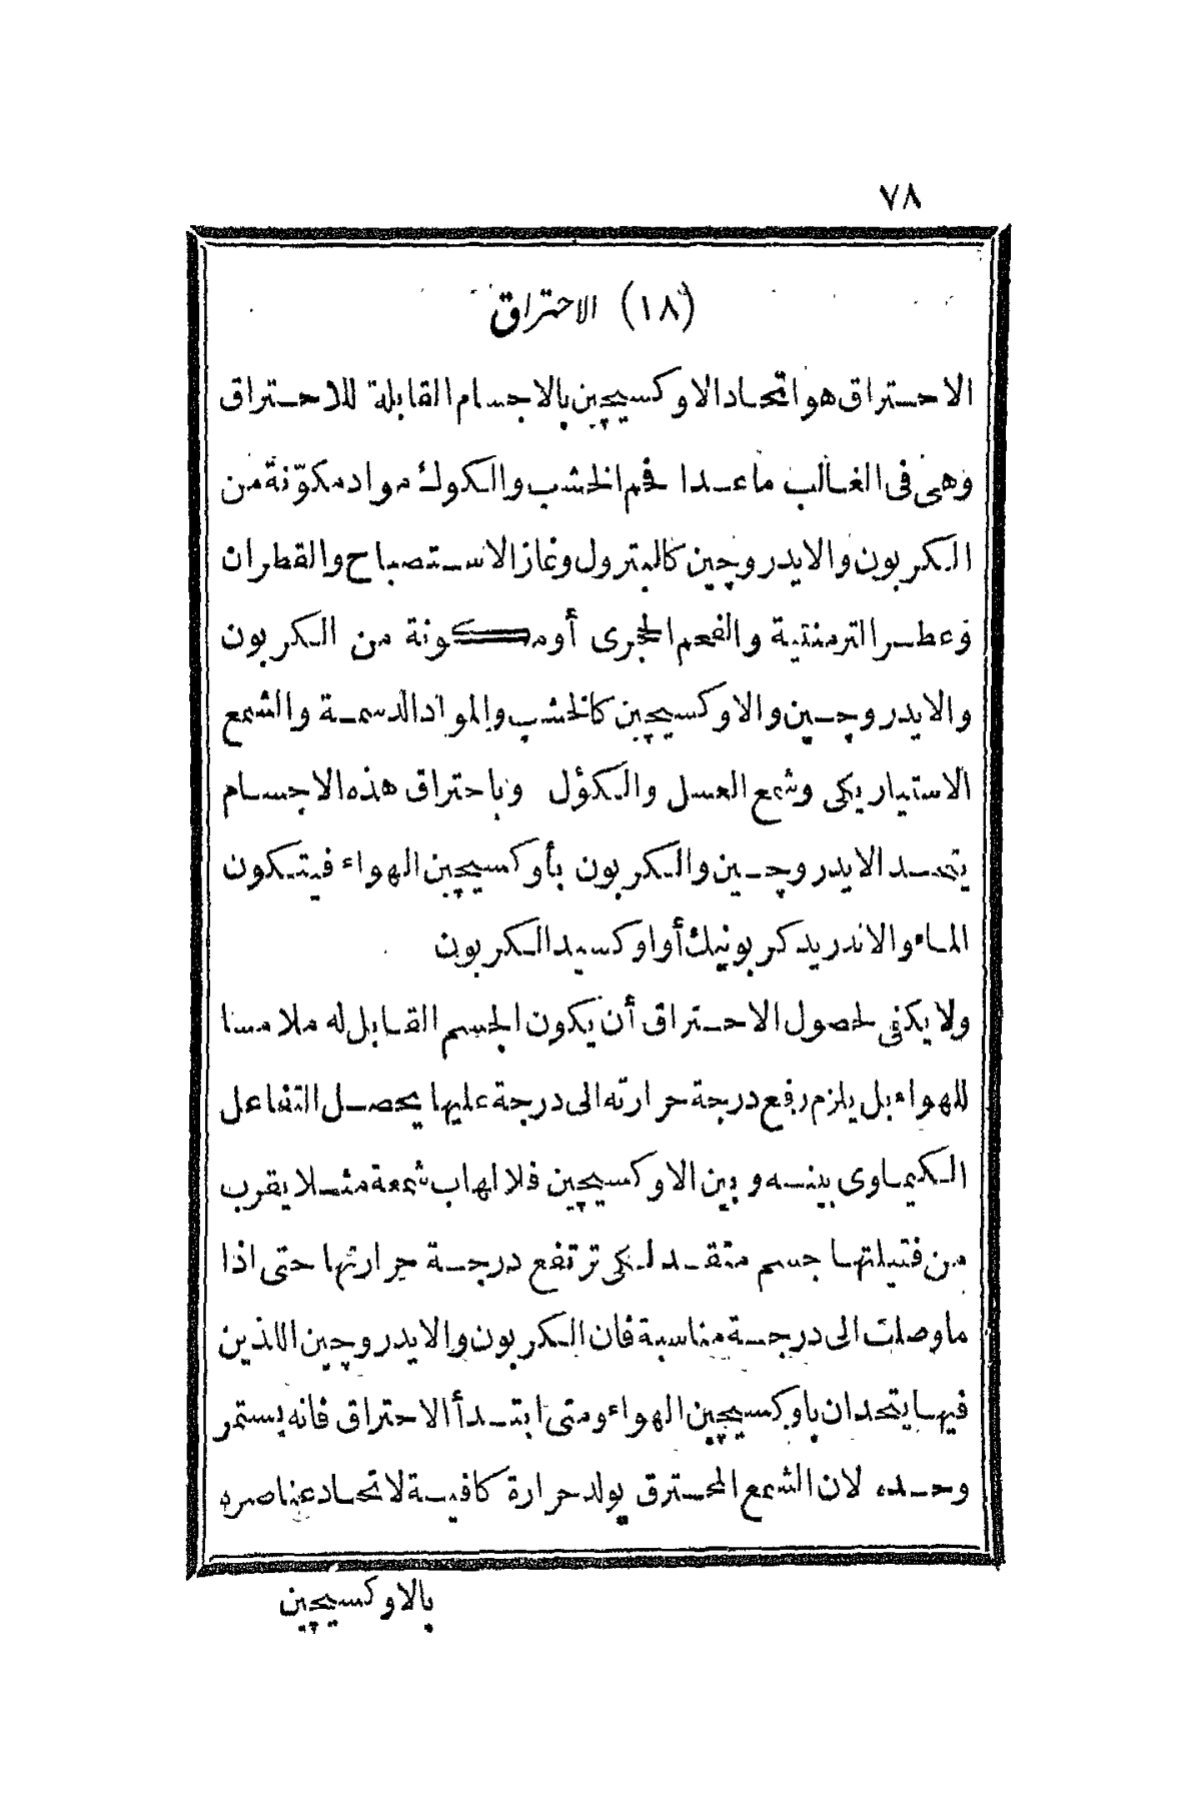 ٧٨
(١٨) الاحتراق
الاحتراق هو اتحاد الاوكسيچين بالاجسام القابلة للاحتراق
وهى فى الغالب ماعدا فحم الخشب والكوك مواد مكوّنة من
الكربون والايدروچين كالبترول وغاز الاستصباح والقطران
وعطر الترمنتية والفحم الحجرى أومكونة من الكربون
والايدروچين والاوكسيچين كالخشب والمواد الدسمة والشمع
الاستياريكى وشمع العسل والكؤل وباحتراق هذه الاجسام
يتحد الايدروچين والكربون بأوكسيچين الهواء فيتكون
الماء والاندريد كربونيك أو اوكسيد الكربون
ولا يكفى لحصول الاحتراق أن يكون الجسم القابل له ملامسا
للهواء بل يلزم رفع درجة حرارته الى درجة عليها يحصل التفاعل
الكيماوى بينه وبين الاوكسيچين فلالهاب شمعة مثلا يقرب
من فتيلتها جسم متقد لكى ترتفع درجة حرارتها حتى اذا
ماوصلت الى درجة مناسبة فان الكربون والايدروچين اللذين
فيها يتحدان باوكسيچين الهواء ومتى ابتدأ الاحتراق فانه يستمر
وحده لان الشمع المحترق يولد حرارة كافية لاتحاد عناصره
بالاوكسيچين